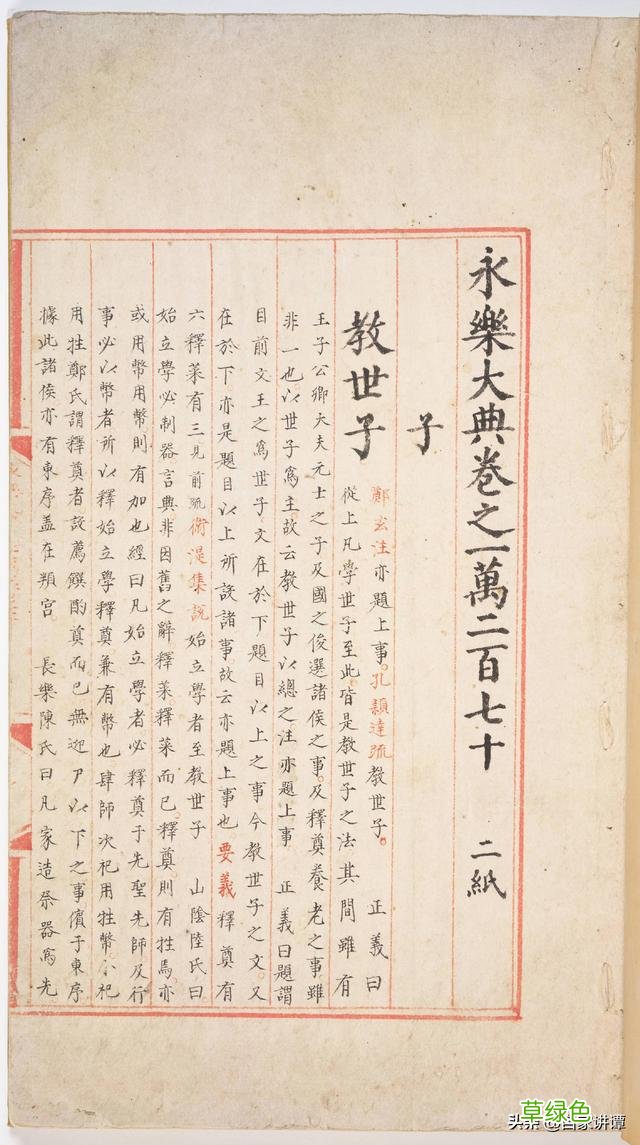 永樂大典卷之一萬二百七十　二紙
子
教世子
鄭玄注亦題上事。孔穎達疏教世子。　正義曰
從上凡學世子至此皆是教世子之法其間雖有
王子公卿大夫元士之子及國之俊選諸侯之事。及釋奠養老之事雖
非一也。以世子爲主。故云教世子以總之注亦題上事　正義曰題謂
目前文王之爲世子文在於下題目以上之事今教世子之文。又
在於下亦是題目以上所設諸事。故云亦題上事也　要義釋奠有
六釋菜有三見前疏衛湜集說始立學者至教世子　山陰陸氏曰
始立學必制器言典。非因舊之辭釋菜釋菜而已。釋奠。則有牲焉。亦
或用幣用幣則有加也經曰凡始立學者必釋奠于先聖先師及行
事必以幣者所以釋始立學釋奠兼有幣也肆師次祀用牲幣。小祀
用牲鄭氏謂釋奠者設薦饌酌奠而已無迎尸以下之事儐于東序
據此諸侯亦有東序蓋在頖宮　長樂陳氏曰凡家造祭器爲先
草绿色
头条 @百家讲谭